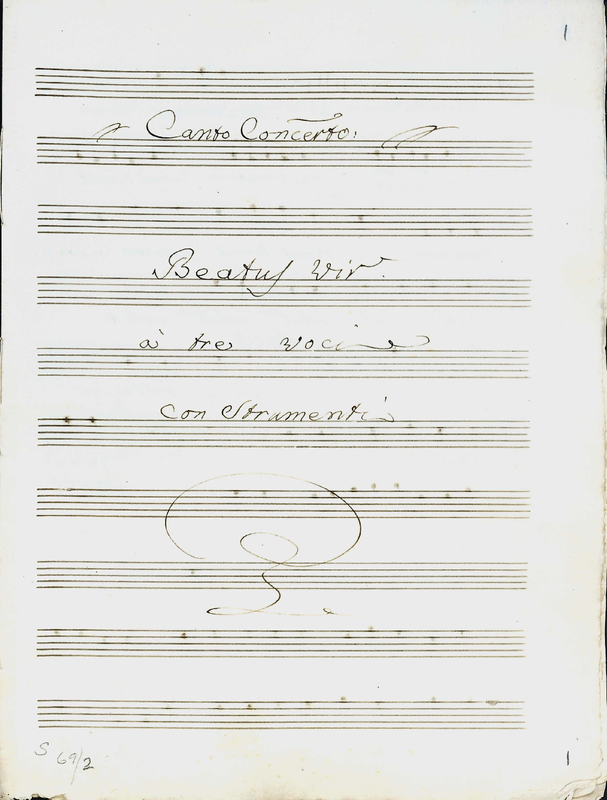 1
Canto Concerto:
Beatus Vir.
à tre voci
con Strumenti
S 69/2
1